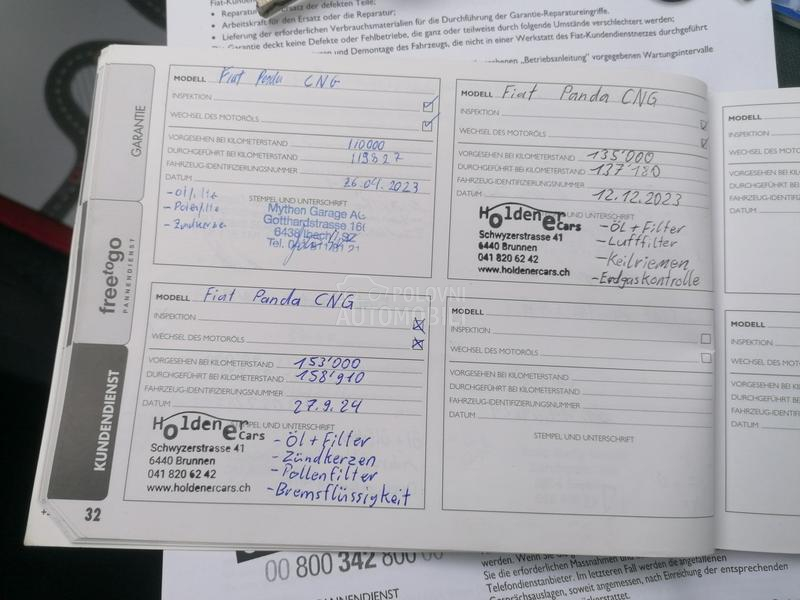 Fiat-Kunden
• Reparatur Ersatz der defekten Teile;
• Arbeitskraft für den Ersatz oder die Reparatur;
• Lieferung der erforderlichen Verbrauchsmaterialien für die Durchführung der Garantie-Reparatureingriffe.
Garantie deckt keine Defekte oder Fehlbetriebe, die ganz oder teilweise durch folgende Umstände verschlechtert werden;
und Demontage des Fahrzeugs, die nicht in einer Werkstatt des Fiat-Kundendienstnetzes durchgeführt
"Betriebsanleitung" vorgegebenen Wartungsintervalle
GARANTIE
freetogo
PANNENDIENST
KUNDENDIENST
MODELL Fiat Panda CNG
INSPEKTION
WECHSEL DES MOTORÖLS
VORGESEHEN BEI KILOMETERSTAND 110000
DURCHGEFÜHRT BEI KILOMETERSTAND 119827
FAHRZEUG-IDENTIFIZIERUNGSNUMMER
DATUM 26.04.2023
STEMPEL UND UNTERSCHRIFT
- Zündkerzen
Mythen Garage AG
Gotthardstrasse
6438 Ibach/SZ
Tel.
MODELL Fiat Panda CNG
INSPEKTION
WECHSEL DES MOTORÖLS
VORGESEHEN BEI KILOMETERSTAND 135'000
DURCHGEFÜHRT BEI KILOMETERSTAND 137'180
FAHRZEUG-IDENTIFIZIERUNGSNUMMER
DATUM 12.12.2023
UND UNTERSCHRIFT
Holdener Cars
Schwyzerstrasse 41
6440 Brunnen
041 820 62 42
www.holdenercars.ch
- Öl + Filter
- Luftfilter
- Keilriemen
- Erdgaskontrolle
MODELL Fiat Panda CNG
INSPEKTION
WECHSEL DES MOTORÖLS
VORGESEHEN BEI KILOMETERSTAND 153'000
DURCHGEFÜHRT BEI KILOMETERSTAND 158'910
FAHRZEUG-IDENTIFIZIERUNGSNUMMER
DATUM 27.9.24
STEMPEL UND UNTERSCHRIFT
Holdener Cars
Schwyzerstrasse 41
6440 Brunnen
041 820 62 42
www.holdenercars.ch
- Öl + Filter
- Zündkerzen
- Pollenfilter
- Bremsflüssigkeit
MODELL
INSPEKTION
WECHSEL DES MOTORÖLS
VORGESEHEN BEI KILOMETERSTAND
DURCHGEFÜHRT BEI KILOMETERSTAND
FAHRZEUG-IDENTIFIZIERUNGSNUMMER
DATUM
STEMPEL UND UNTERSCHRIFT
MODELL
INSPEKTION
WECHSEL DES
VORGESEHEN
DURCHGEFÜHRT
FAHRZEUG-IDEN
DATUM
MODELL
INSPEKTION
WECHSEL DES MO
VORGESEHEN BE
DURCHGEFÜHRT
FAHRZEUG-IDENTI
DATUM
POLOVNI
AUTOMOBILI
32
00 800 342 800 00
PANNENDIENST
werden. Wenn Sie
Sie die erforderlichen Massnahmen
Telefondienstanbieter. Im letzteren Fall werden die angefallenen
Gesprächsauslagen, soweit angemessen, nach Einreichung der entsprechenden